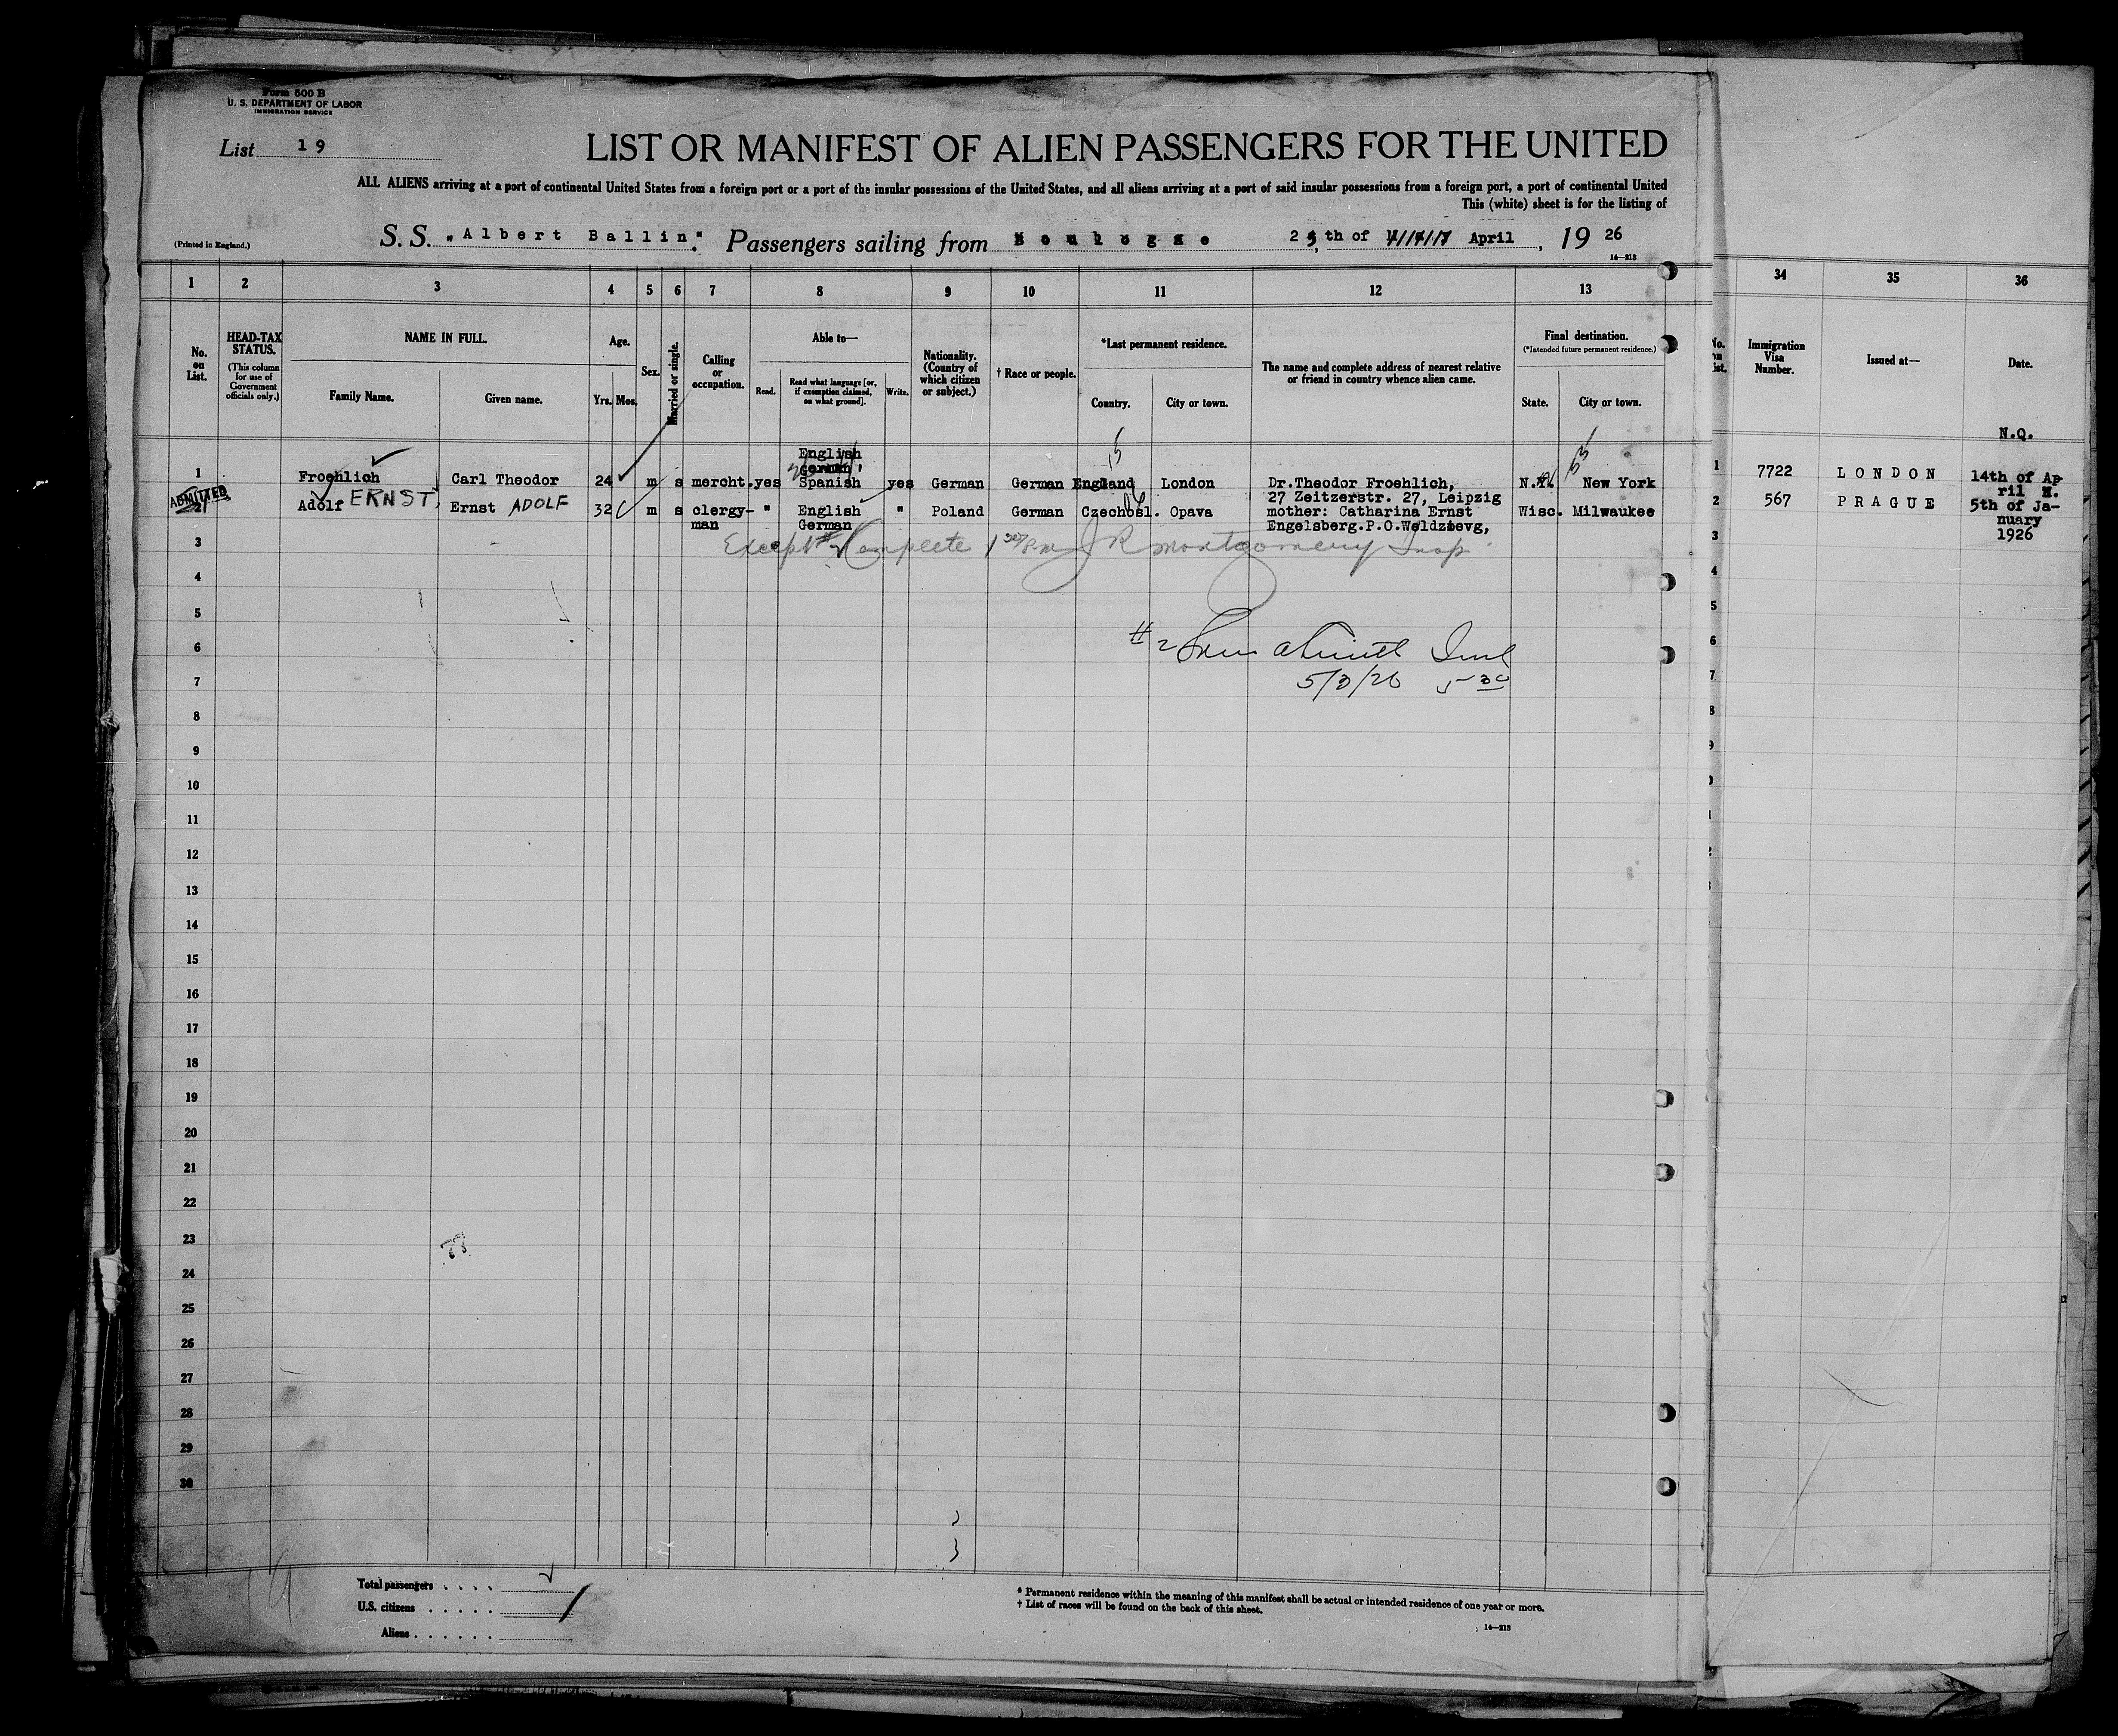 Form 500 B
U. S. DEPARTMENT OF LABOR
IMMIGRATION SERVICE
List 19
LIST OR MANIFEST OF ALIEN PASSENGERS FOR THE UNITED
ALL ALIENS arriving at a port of continental United States from a foreign port or a port of the insular possessions of the United States, and all aliens arriving at a port of said insular possessions from a foreign port, a port of continental United
This (white) sheet is for the listing of
(Printed in England.)
S. S. „Albert Ballin" Passengers sailing from th of April, 19 26
14—213
1 2 3 4 5 6 7 8 9 10 11 12 13 34 35 36
No. on List.
HEAD-TAX STATUS.
(This column for use of Government officials only.)
NAME IN FULL.
Family Name. Given name.
Age.
Yrs. Mos.
Sex.
Married or single.
Calling or occupation.
Able to—
Read. Read what language [or, if exemption claimed, on what ground]. Write.
Nationality. (Country of which citizen or subject.)
† Race or people.
*Last permanent residence.
Country. City or town.
The name and complete address of nearest relative or friend in country whence alien came.
Final destination.
(*Intended future permanent residence.)
State. City or town.
Immigration Visa Number.
Issued at—
Date.
N.Q.
English
german
1 Froehlich Carl Theodor 24 m s mercht. yes Spanish yes German German England London Dr.Theodor Froehlich, N.Y. New York 1 7722 LONDON 14th of Ap
27 Zeitzerstr. 27, Leipzig ril
ADMITTED
2 Adolf ERNST, Ernst ADOLF 32 m s clergy- " English " Poland German Czechosl. Opava mother: Catharina Ernst Wisc. Milwaukee 2 567 PRAGUE 5th of Ja-
man German Engelsberg.P.O. nuary
1926
3 Except #2 Complete PM J R Montgomery Insp 3
4 4
5 5
6 #2 6
7 5/3/26 5 30 7
8
9
10
11
12
13
14
15
16
17
18
19
20
21
22
23
24
25
26
27
28
29
30
Total passengers . . . .
U.S. citizens . . . . .
Aliens . . . . . .
* Permanent residence within the meaning of this manifest shall be actual or intended residence of one year or more.
† List of races will be found on the back of this sheet.
14—213